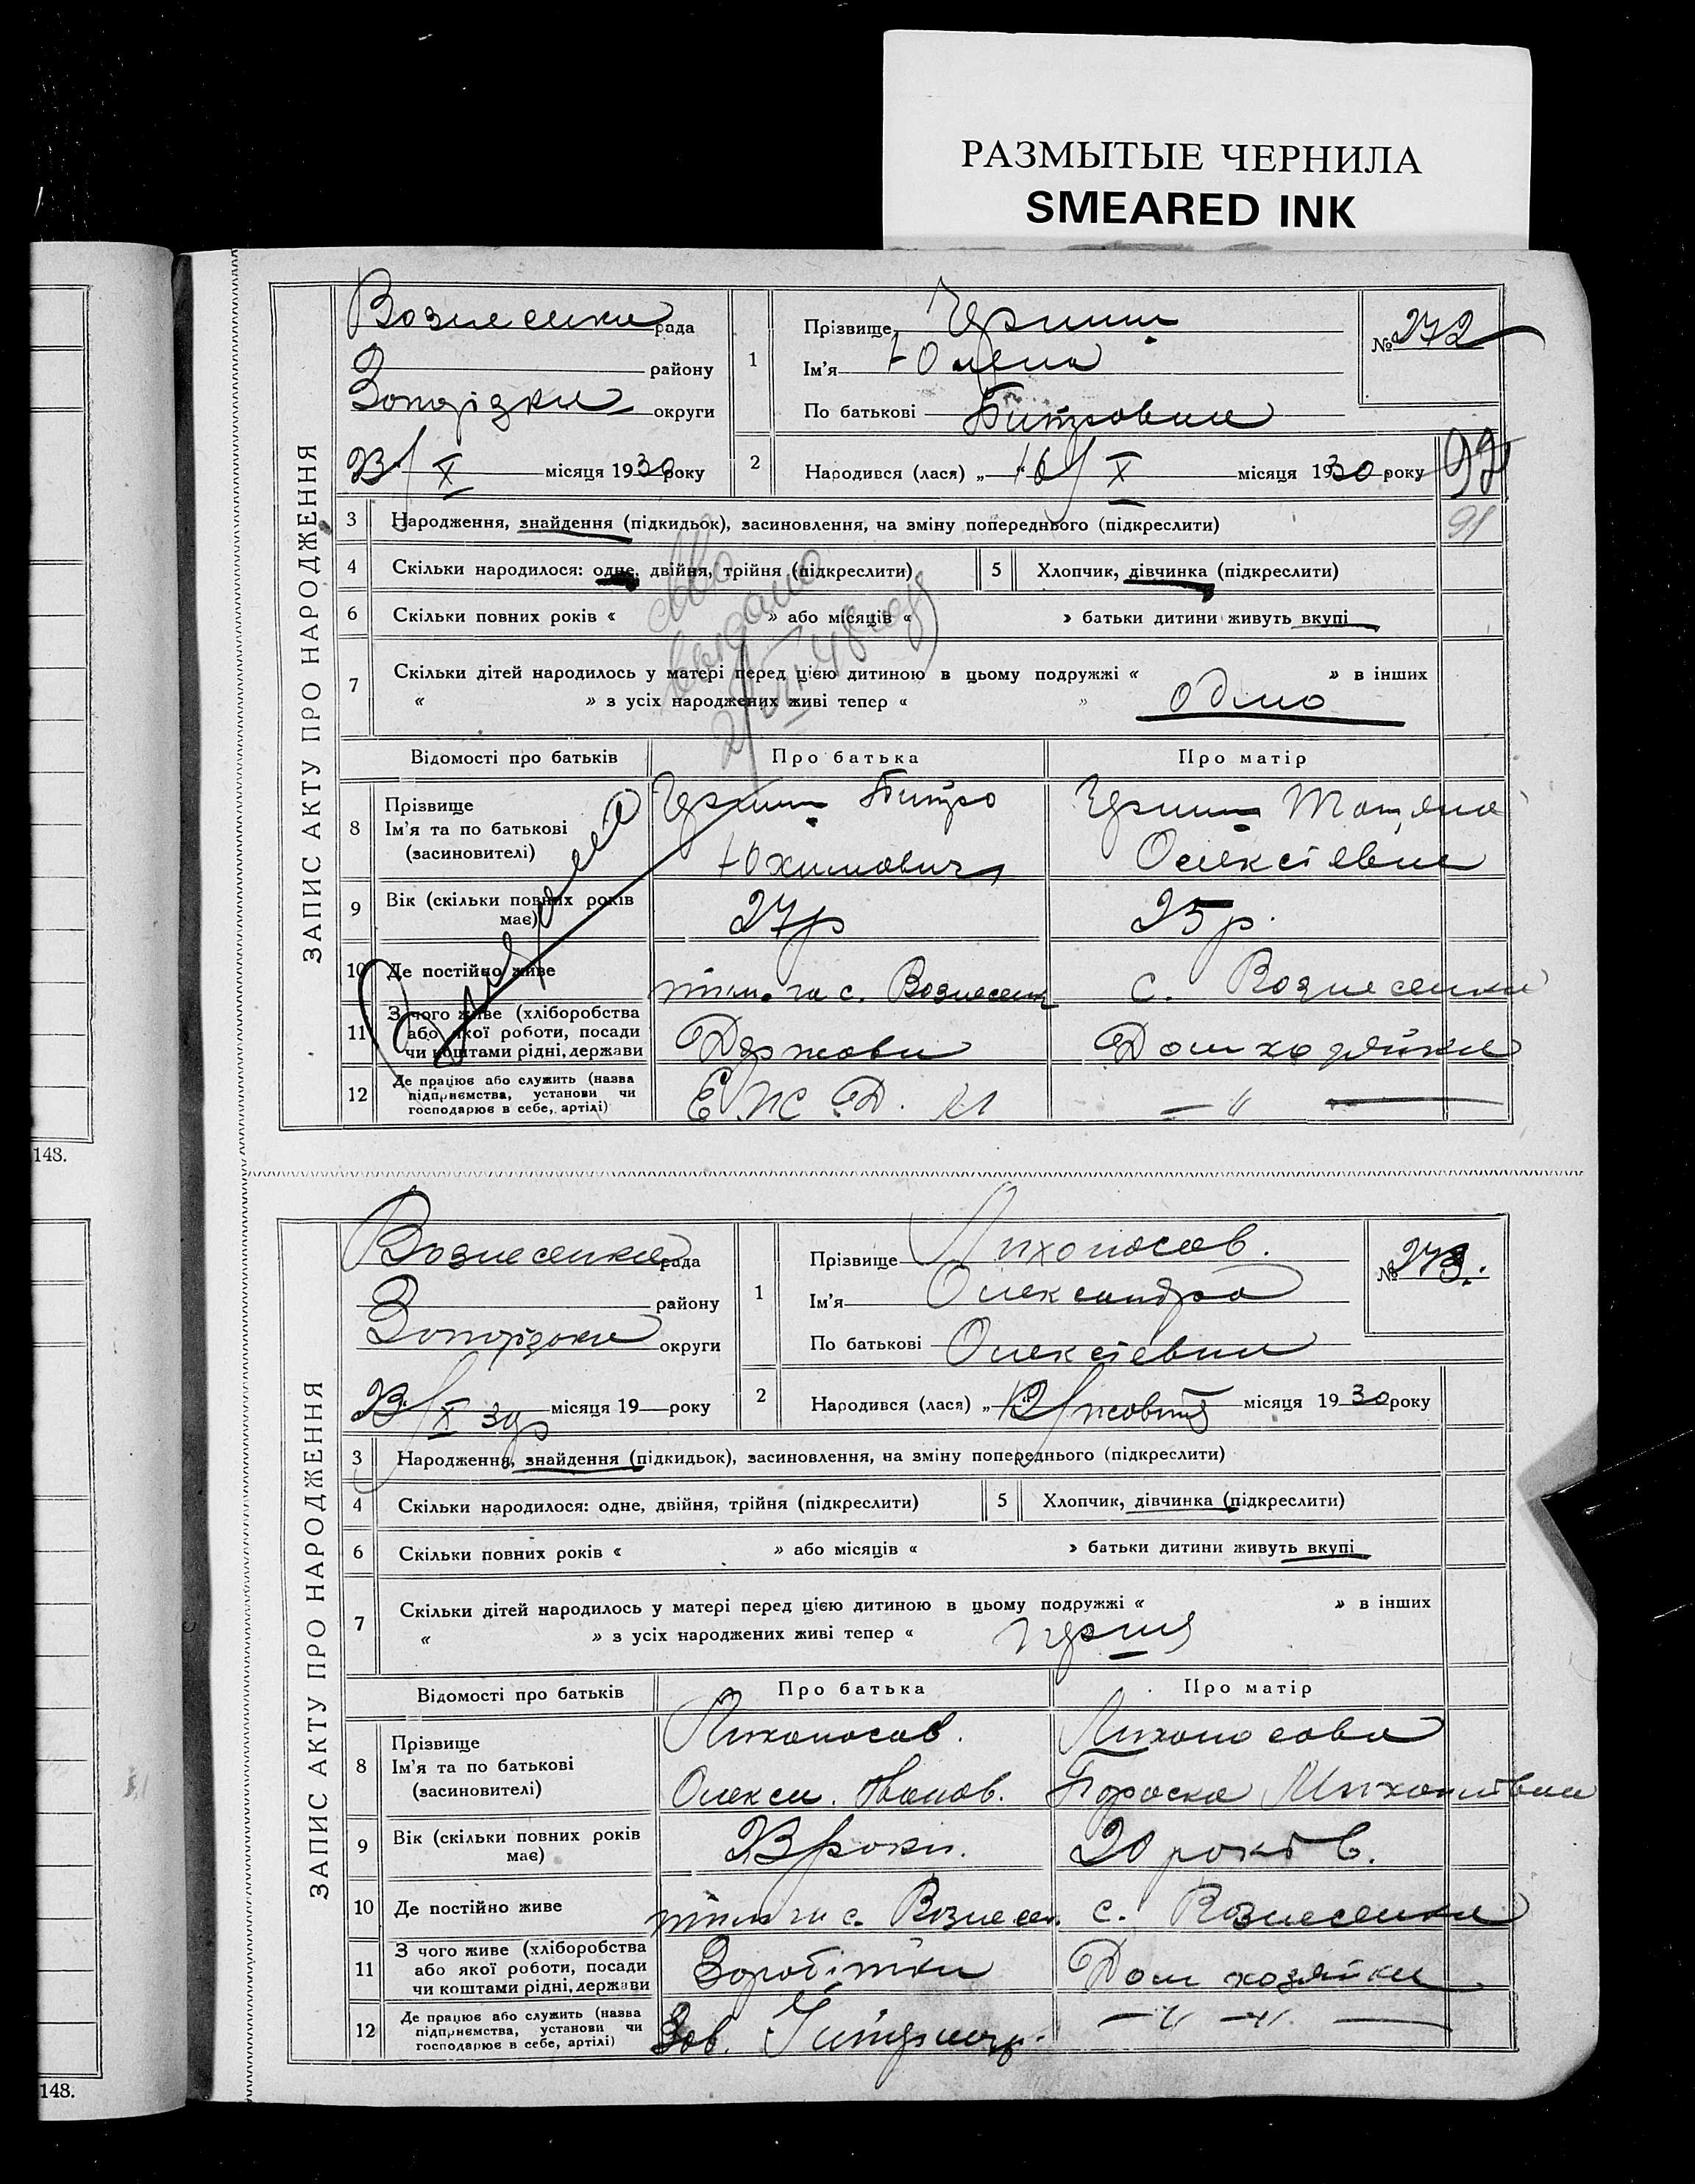 РАЗМЫТЫЕ ЧЕРНИЛА
SMEARED INK
ЗАПИС АКТУ ПРО НАРОДЖЕННЯ
Вознесенка рада
району
округи
23/X місяця 1930 року
1
Прізвище
Ім'я Юлена
По батькові
№ 272
2
Народився (лася) „16/X місяця 1930 року
92
91
3 Народження, знайдення (підкидьок), засиновлення, на зміну попереднього (підкреслити)
4 Скільки народилося: одне, двійня, трійня (підкреслити)
5 Хлопчик, дівчинка (підкреслити)
6 Скільки повних років « » або місяців « » батьки дитини живуть вкупі
7 Скільки дітей народилось у матері перед цією дитиною в цьому подружжі « » в інших
« » з усіх народжених живі тепер « » одно
Відомості про батьків
Про батька
Про матір
8 Прізвище
Ім'я та по батькові
(засновителі)
Юхимович
Олексіевна
9 Вік (скільки повних років має)
27р
25р.
10 Де постійно живе
с. Вознесен
с. Вознесенка
11 З чого живе (хліборобства
або якої роботи, посади
чи коштами рідні, держави
Держави
Домхозяйка
12 Де працює або служить (назва
підприємства, установи чи
господарює в себе, артілі)
— „ —
143.
ЗАПИС АКТУ ПРО НАРОДЖЕННЯ
Вознесенка рада
району
округи
23/X 30р місяця 19 року
1
Прізвище Лихоносов.
Ім'я Олександра
По батькові Олексіевна
№ 273.
2
Народився (лася) „12/жовтня місяця 1930 року
3 Народження, знайдення (підкидьок), засиновлення, на зміну попереднього (підкреслити)
4 Скільки народилося: одне, двійня, трійня (підкреслити)
5 Хлопчик, дівчинка (підкреслити)
6 Скільки повних років « » або місяців « » батьки дитини живуть вкупі
7 Скільки дітей народилось у матері перед цією дитиною в цьому подружжі « » в інших
« » з усіх народжених живі тепер « перша
Відомості про батьків
Про батька
Про матір
8 Прізвище
Ім'я та по батькові
(засиновителі)
Лихоносов.
Олекси. Іванов.
Лихоносова
9 Вік (скільки повних років має)
23 роки.
20 років.
10 Де постійно живе
с. Вознесен.
с. Вознесенка
11 З чого живе (хліборобства
або якої роботи, посади
чи коштами рідні, держави
Заробітки
Дом хозяйка
12 Де працює або служить (назва
підприємства, установи чи
господарює в себе, артілі)
Зав.
— „ — „ —
148.